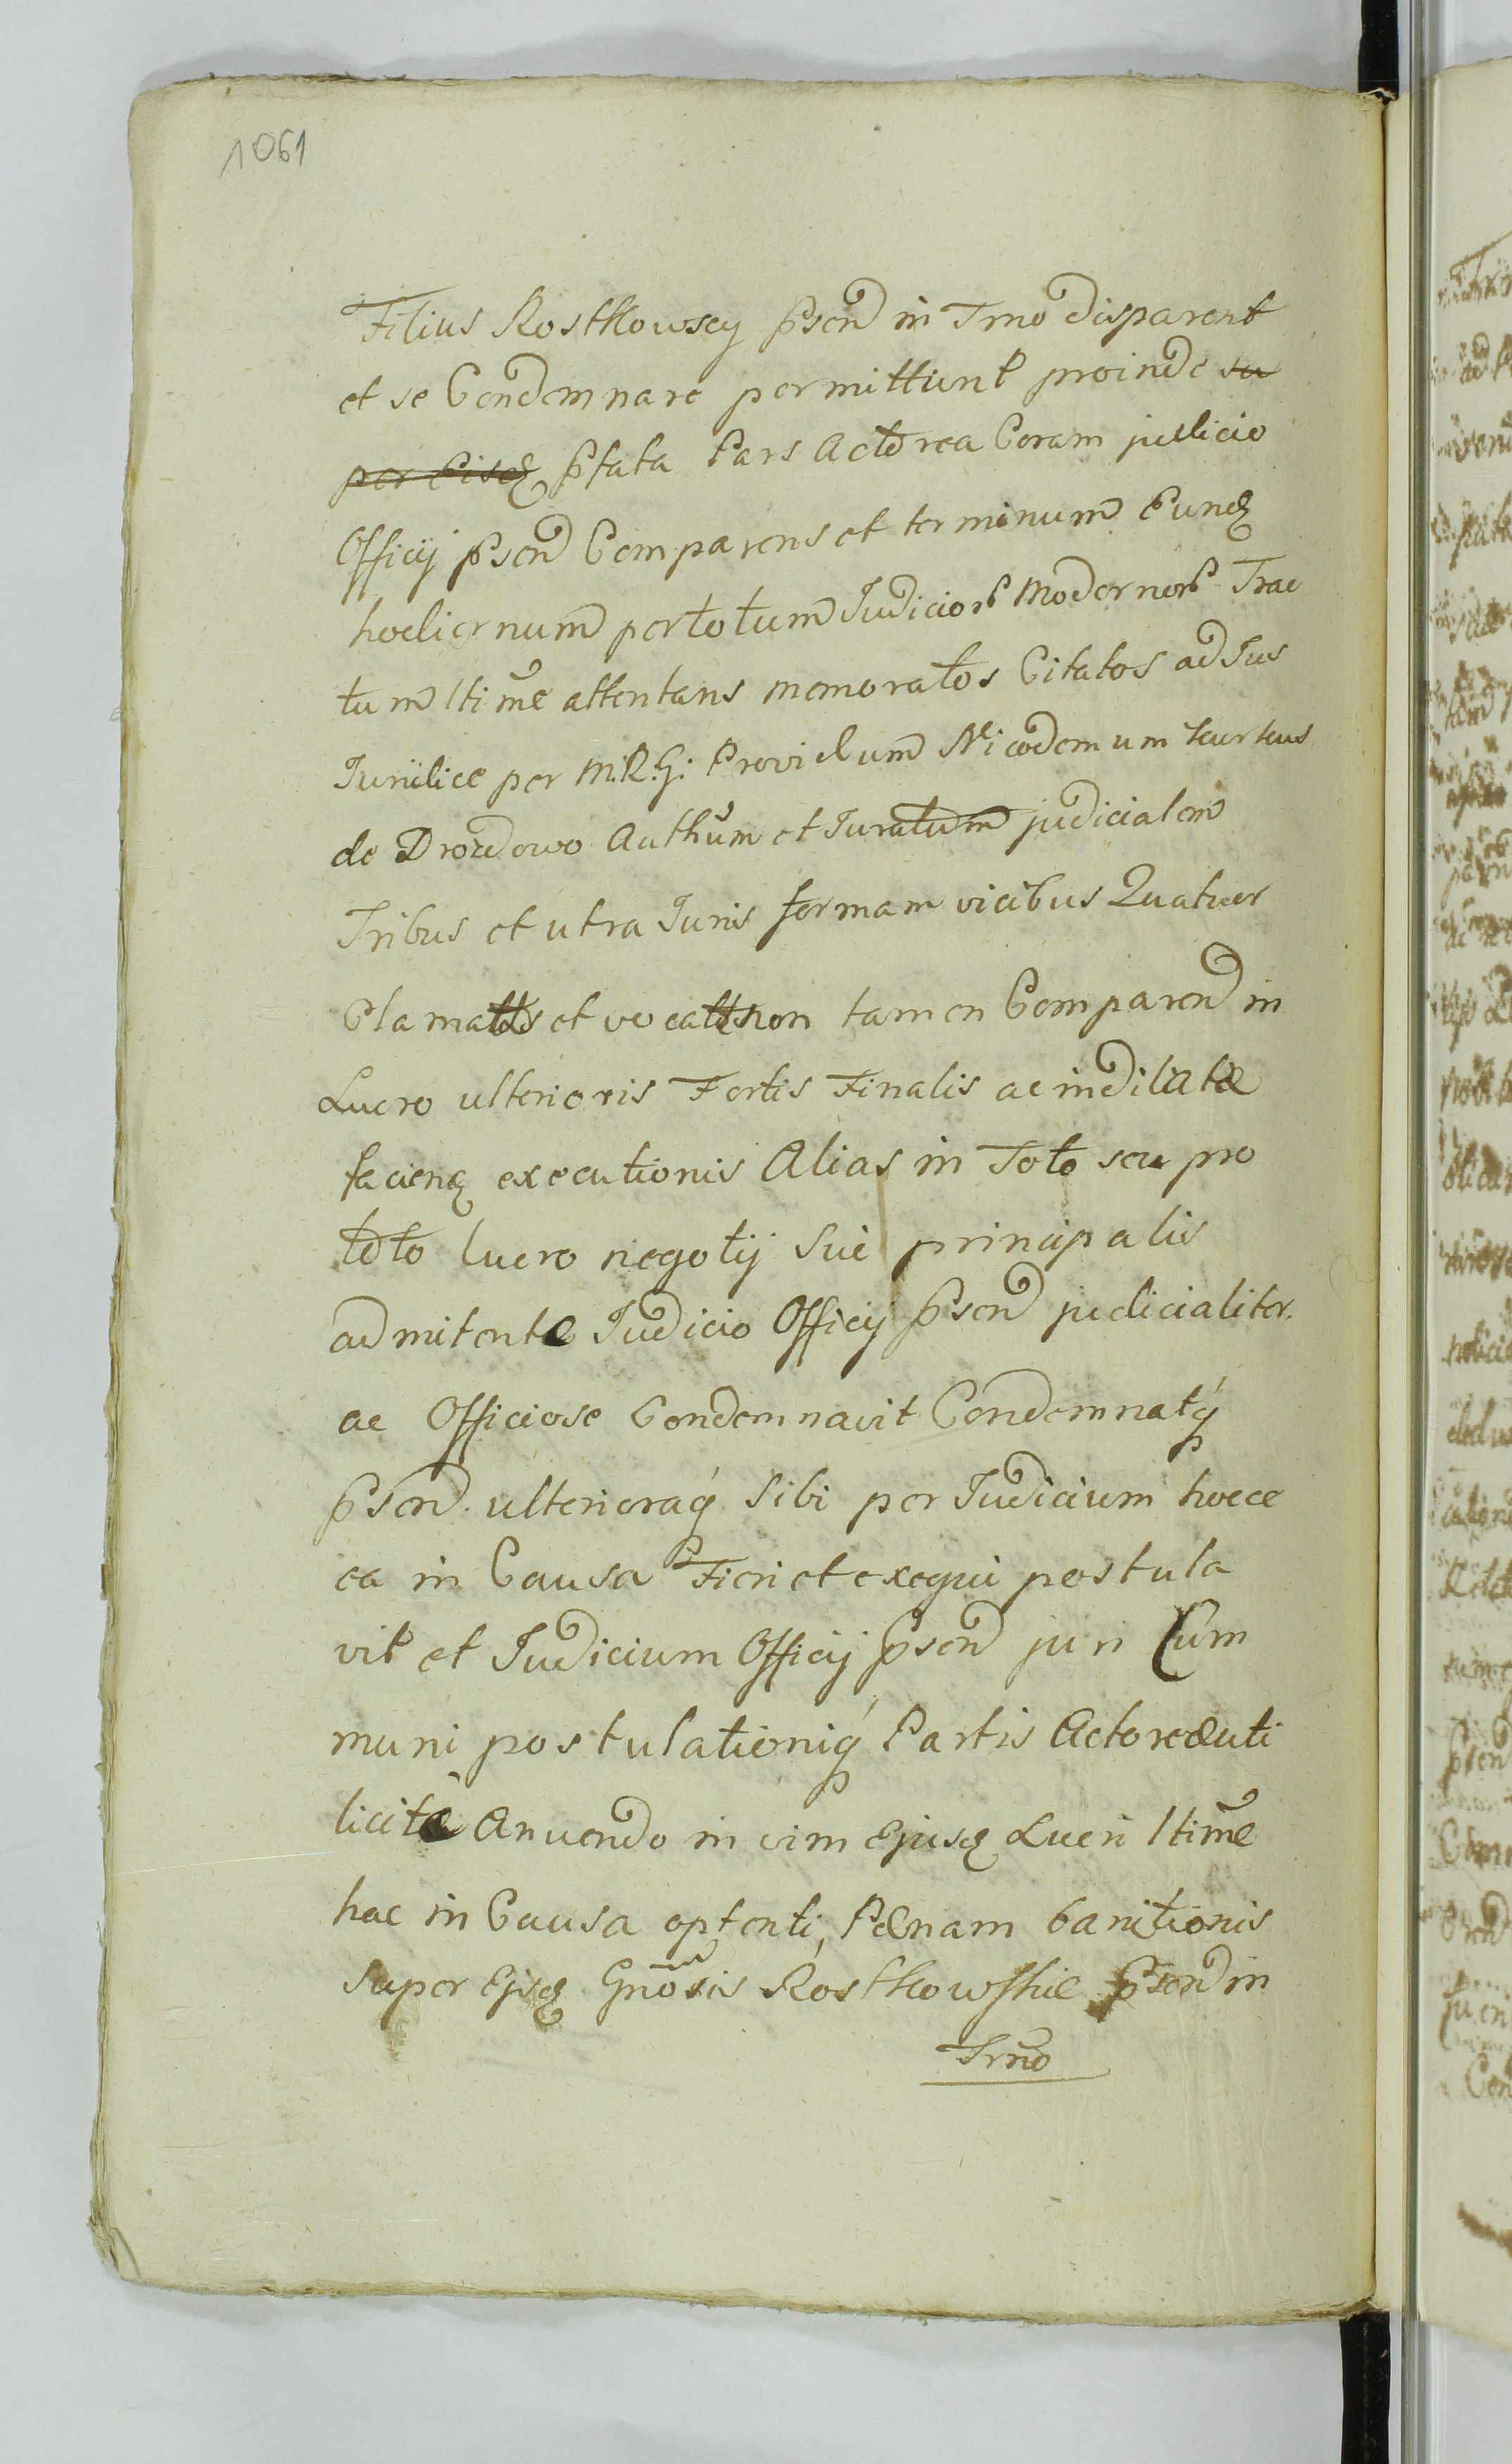 1061
Filius Rostkowscy p̄send in Trno disparent
et se Condemnare permittunt proinde su
per Eisq p̄fata Pars Actorea Coram judicio
Officij p̄send Comparens et terminum Eunq
hodiernum per totum Judicior Modernor Trac
tum ltime attentans memoratos Citatos ad Jus
Juridice per M.R.G: Providum Nicodemum
de Drozdowo Authum et Juratum judicialem
Tribus et utra Juris formam vicibus Quatuor
Clamatos et vocatos non tamen Comparend in
Lucro ulterioris Fortis Finalis ac indilatæ
faciend executionis Alias in Toto seu pro
toto lucro negotij sui principalis
admitente Judicio Officij p̄send judicialiter.
ac Officiose Condemnavit Condemnatq́
p̄send. ulterioraq́ Sibi per Judicium hocce
ea in Causa Fieri et exequi postula
vit et Judicium Officij p̄send juri Com
muni postulationiq́ Partis Actoreæ uti
licitæ Anuendo in vim Ejusq Lucri ltime
hac in Causa optenti, Pænam banitionis
super Ejsq Gnosis Rostkowskie p̄send in
Trno